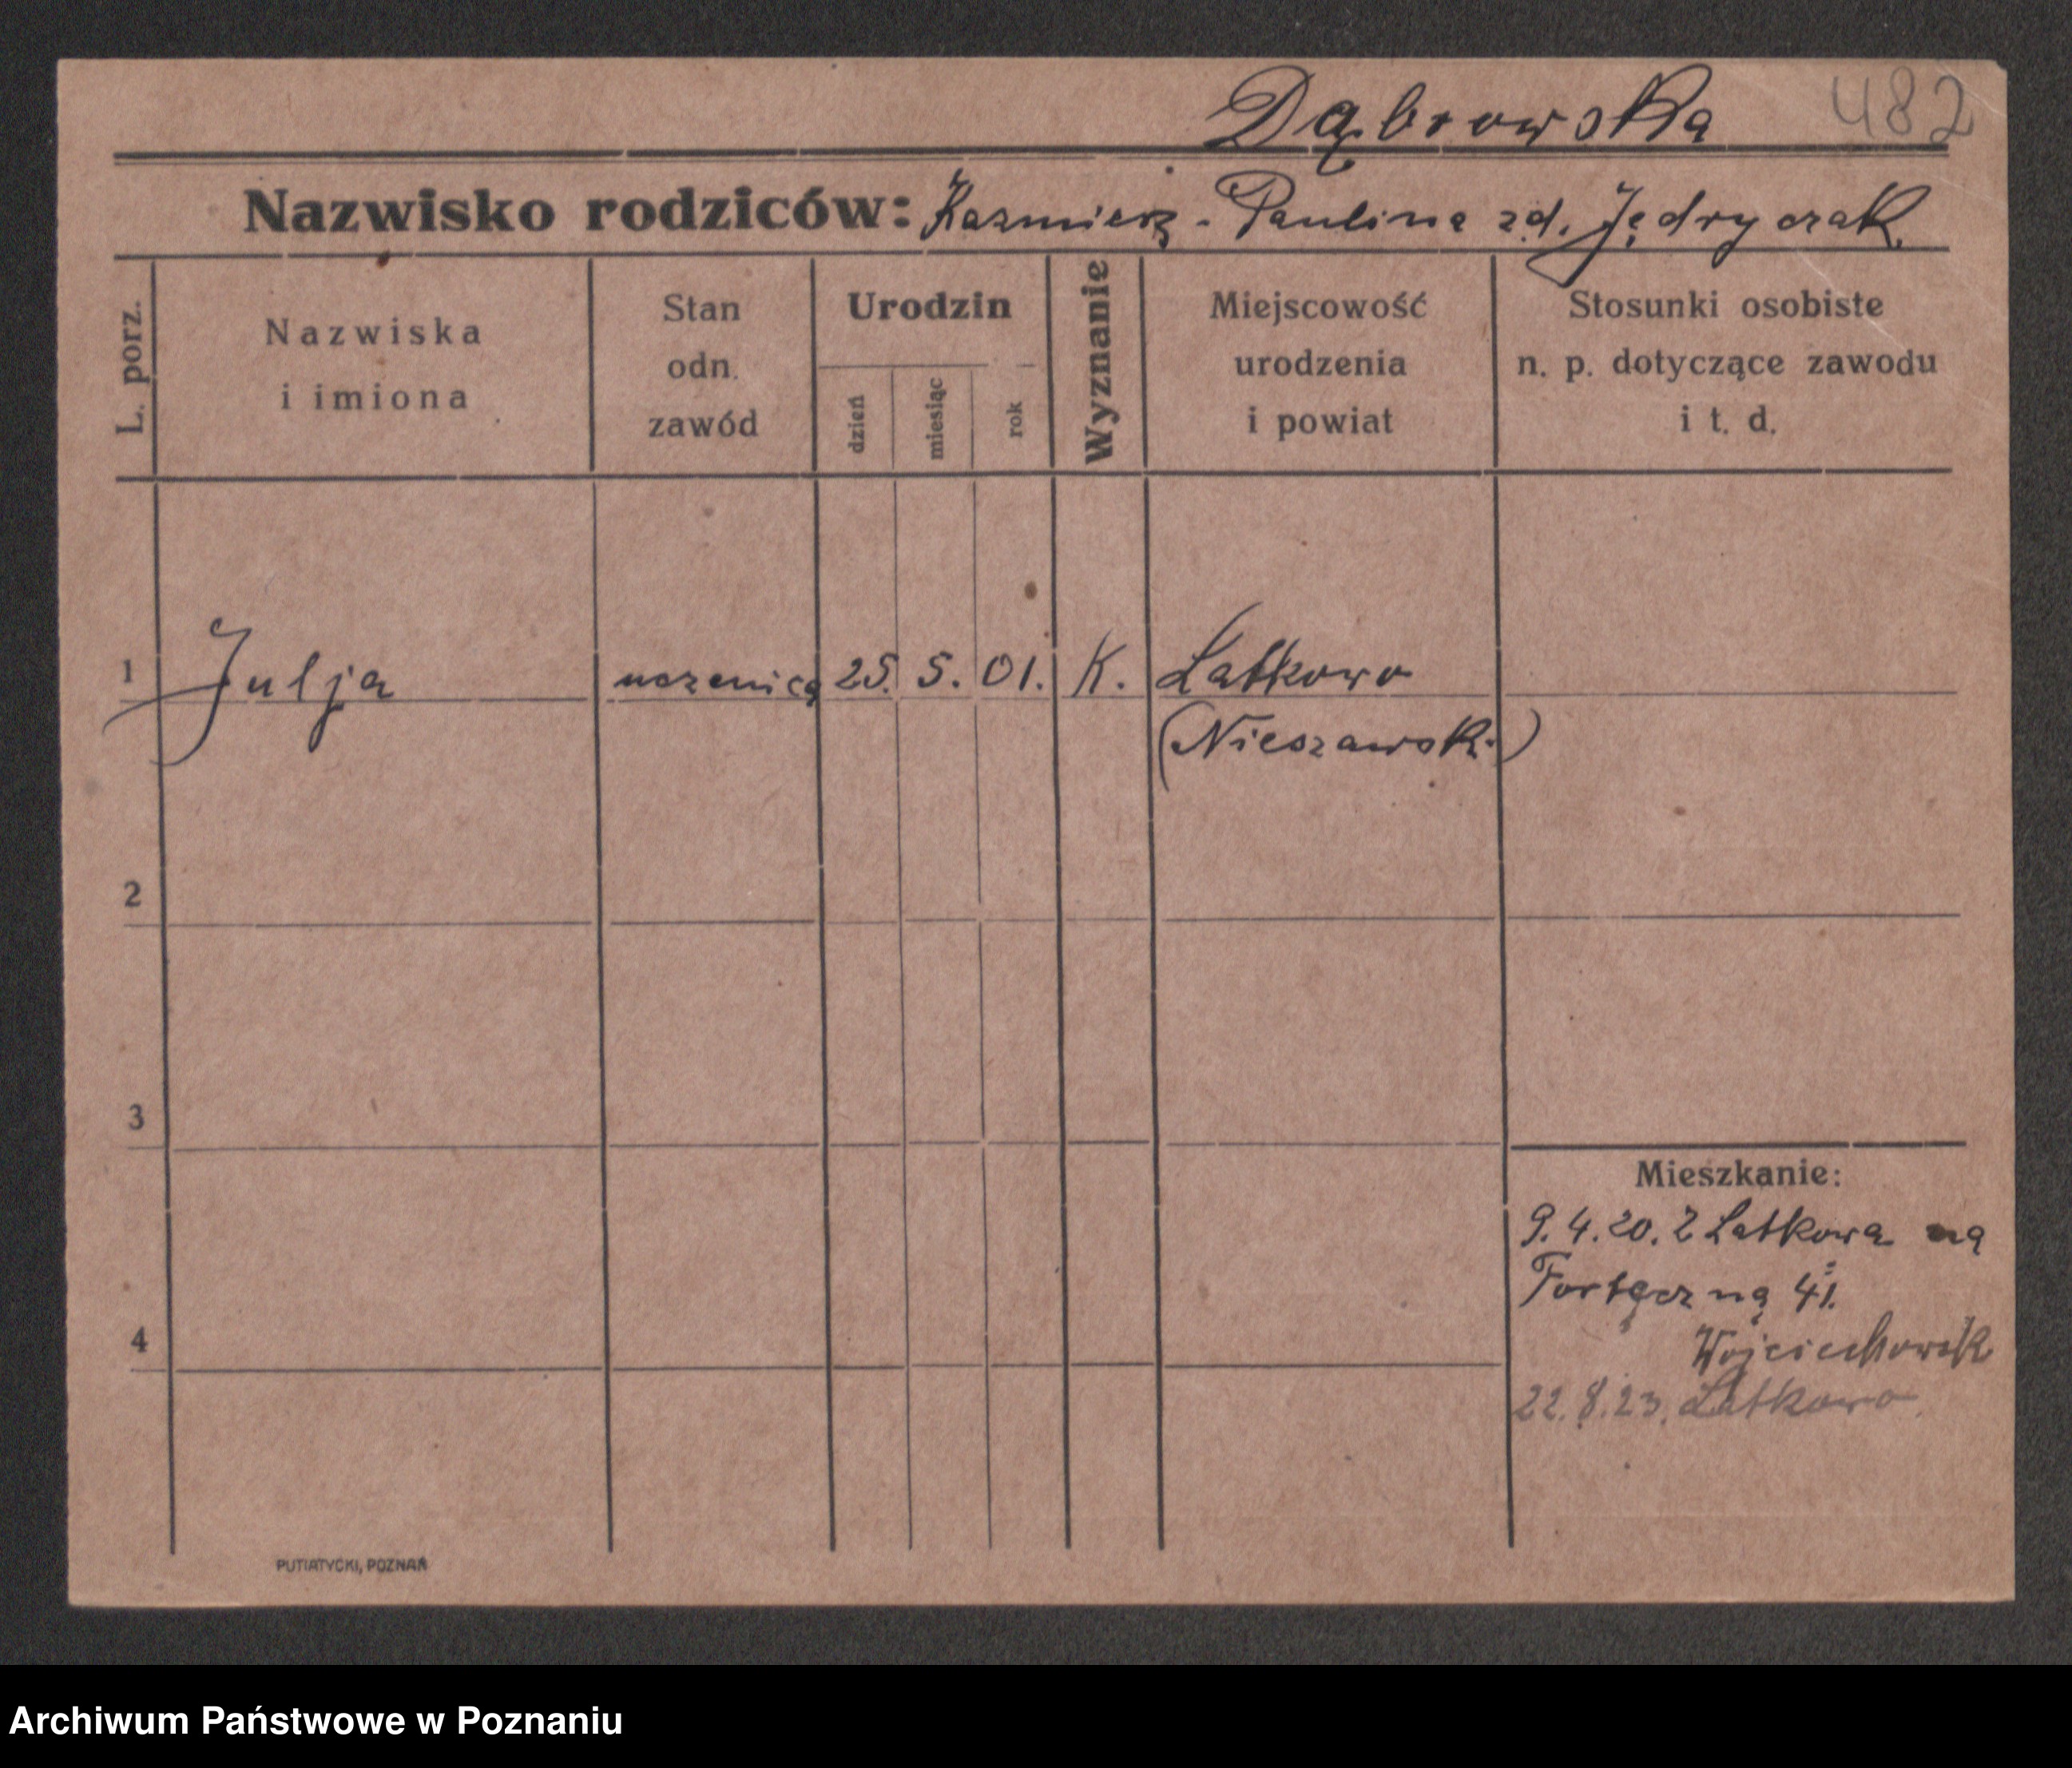 Dąbrowska 482
Nazwisko rodziców: Kazmierz - Paulina zd. Jędryczak
L. porz.
Nazwiska
i imiona
Stan
odn.
zawód
Urodzin
dzień
miesiąc
rok
Wyznanie
Miejscowość
urodzenia
i powiat
Stosunki osobiste
n. p. dotyczące zawodu
i t. d.
1 Julja uczenica 25. 5. 01. K. Latkowo
(Nieszawsk.)
2
3
4
Mieszkanie:
9.4.20. Z Latkowa na
Forteczną 41.
Wojciechowsk
22.8.23. Latkowo.
PUTIATYCKI, POZNAŃ
Archiwum Państwowe w Poznaniu